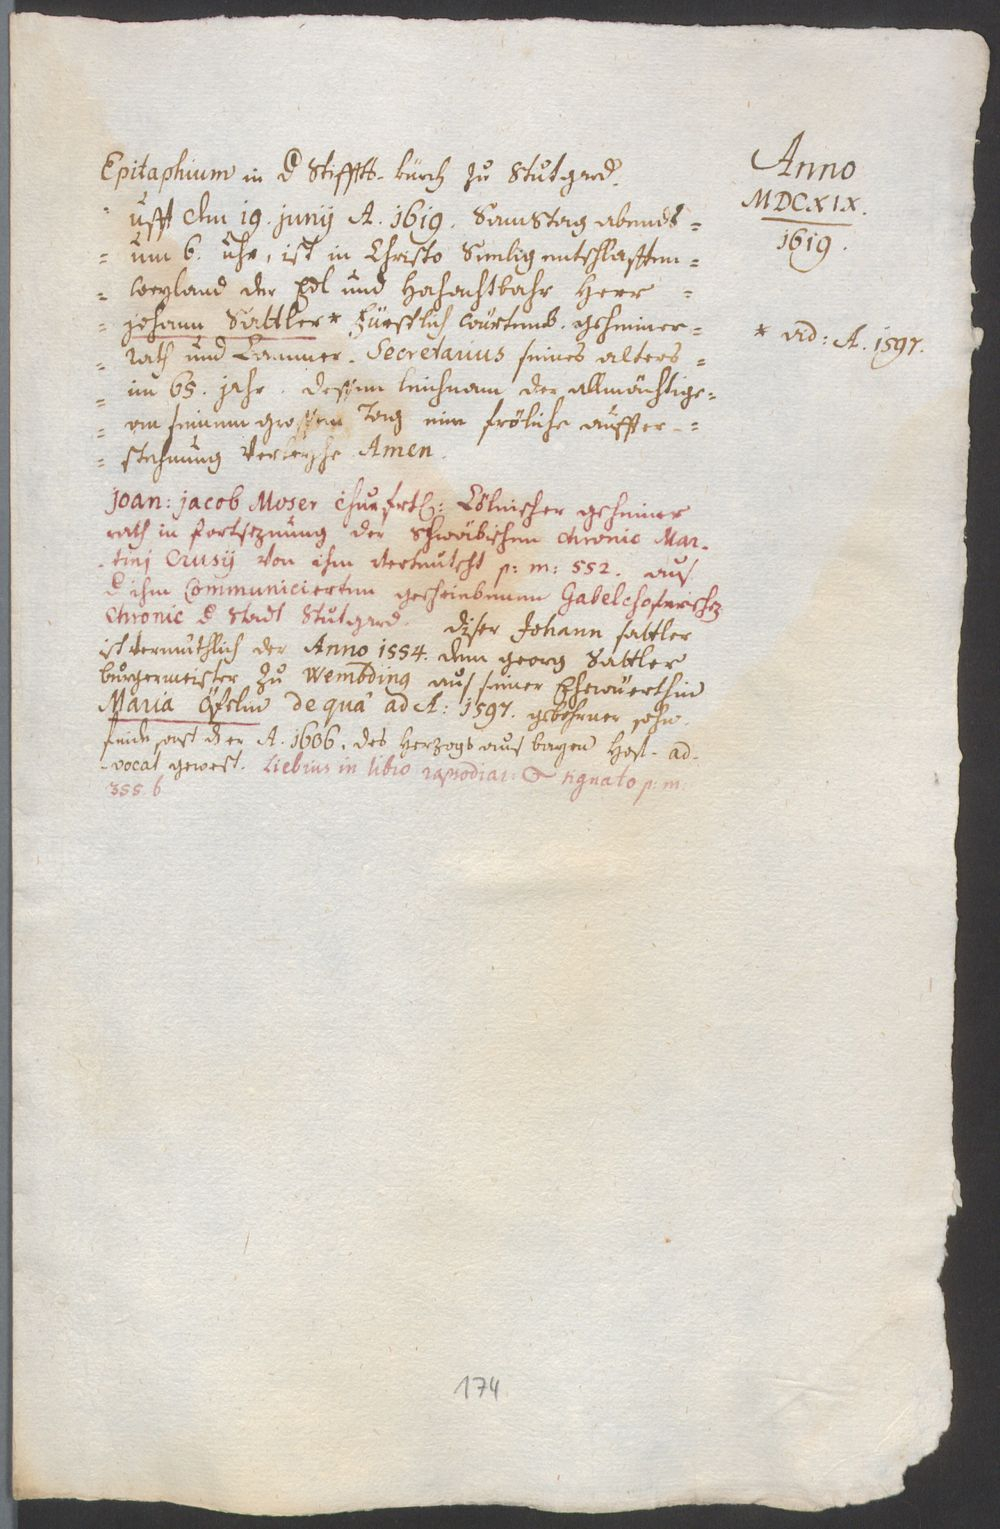 Anno
MDCXIX.
1619.
Epitaphium in d Stiffts-kürch zu Stutgard.
ufft den 19. junij A. 1619. Samstag abends =
= um 6. uhr, ist in Christo Seelig entschlaffen =
= weyland der Edl und Hochachtbahr Herr =
= johann Sattler * Fürstlich würtemb. geheimer =
= rath und Cammer-Secretarius seines alters =
= im 65. jahr. dessen leichnam der allmächtige =
= an seinem grossen Tag eine fröliche auffer- =
= stehung verleyhe Amen.
* vid: A. 1597.
joan: jacob Moser churfrtl: Cölnischer geheimer
rath in fortsezung der Schwäbischen chronic Mar-
-tinj Crusij von ihm verteutscht p: m: 552. aus
d ihm Communicierten geschriebenen Gabelchoferischen
Chronic d Stadt Stutgard. diser Johann sattler
ist vermuthlich der Anno 1554. dem georg Sattler
burgermeister zu Wembding aus seiner Ehewürthin
Maria de qua ad A: 1597. gebohrner sohn.
sonst der A. 1606. des Herzogs aus bayrn Hof-ad-
-vocat gewest. Liebius in libro rapsodiar: signato p: m:
355. b
174